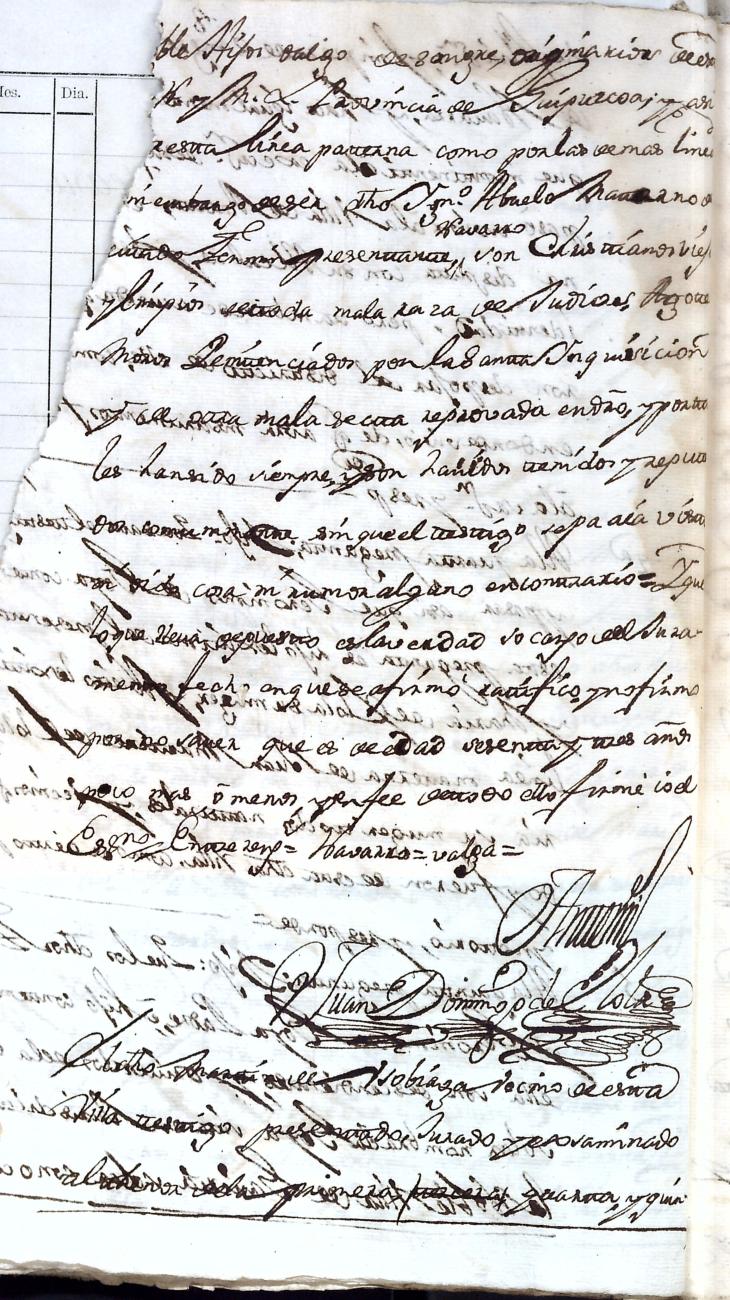 Mes. Dia.
ble Hijos dalgo de sangre, originarios de esta
N. y M. L. Provincia de Guipuzcoa; y asi
resta linea paterna como por las demas linea
sin embargo de ser dho Ygn.º Abuelo Materno
Navarro
citado presentante, son Christianos viej
limpios de toda mala raza de Judios, Agote
Moros Penitenciados por la Santa Ynquisicion
y de otra mala secta reprovada en dro, y por ta
les han sido siempre, y son havidos tenidos y reputa
dos comunmente sin que el testigo sepa aia visto
ni oido cosa ni rumor alguno en contrario = Y que
lo que lleva depuesto es la verdad so cargo del Jura-
mento fecho en que se afirmó ratificó, y no firmo
por no saver que es de edad sesenta y tres años
poco mas ó menos y en fee de todo ello firmé io el
Ess.no Entre reng.s = Navarro = valga =
Antemi
Juan Domingo de
Dicho Martin de Ysobiaga vecino de esta
Villa testigo presentado Jurado y exsaminado
al thenor de la primera, tercera, quarta, y quin